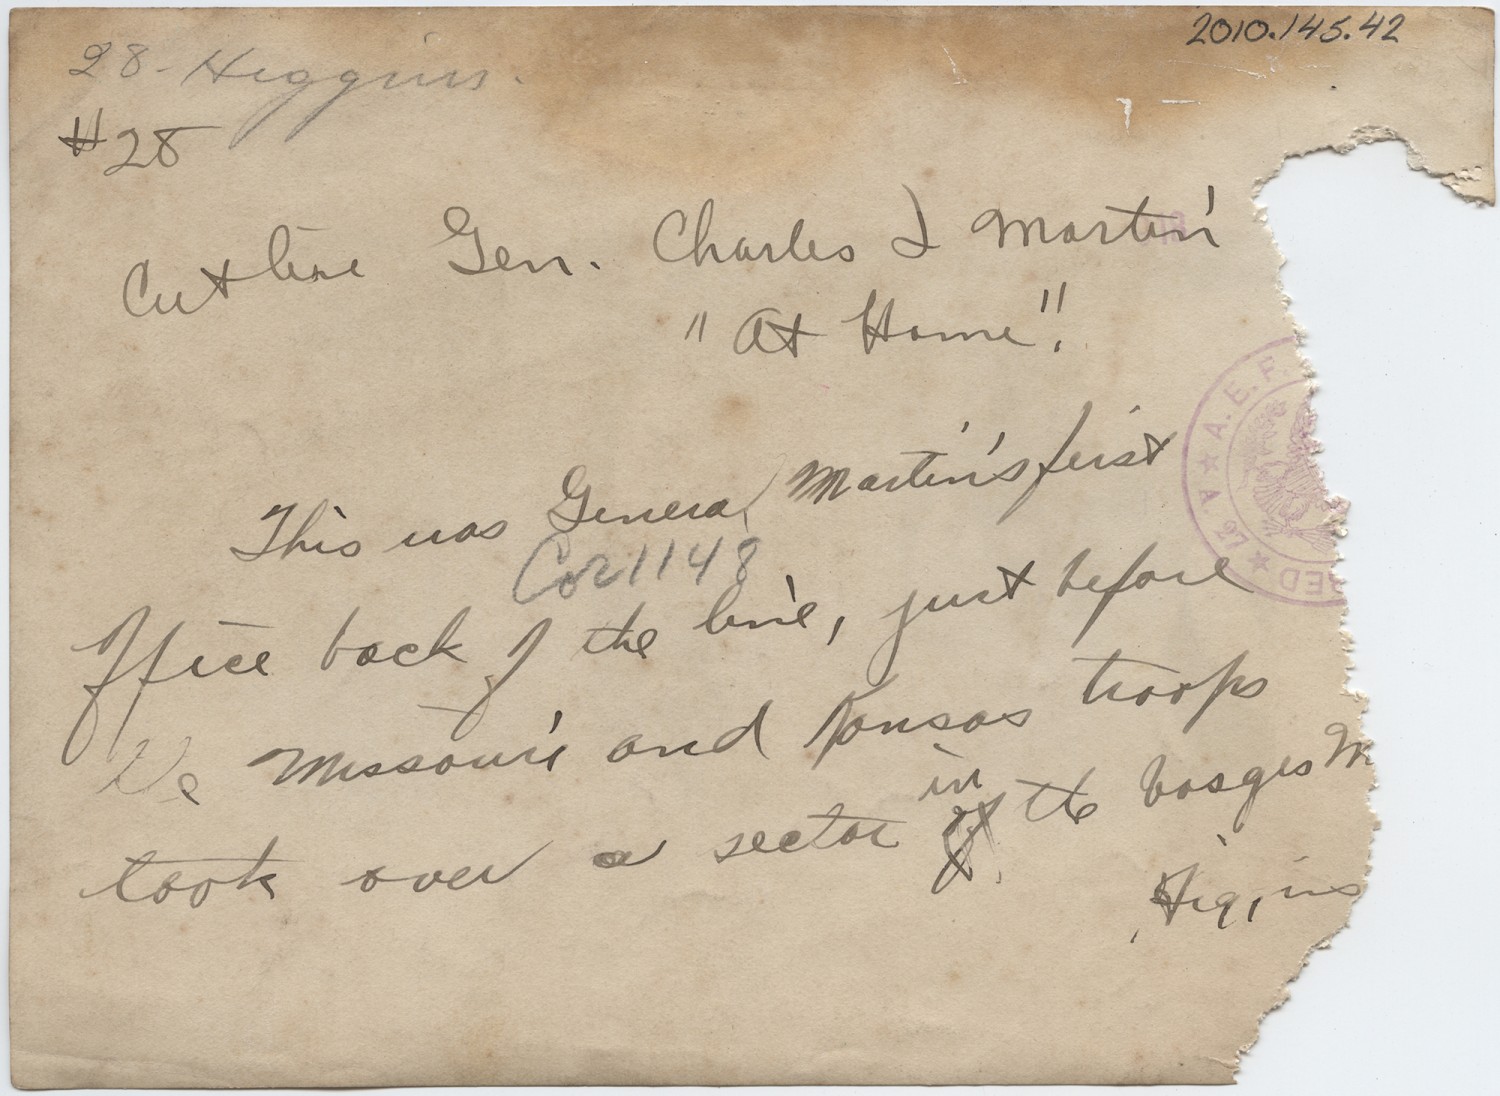 2010.145.42
28- Higgins.
#28
Cutline Gen. Charles I Martin
"At Home".
This was General Martin's first
Office back of the line, just before
Col 1148
the Missouri and Kansas troops
took over a sector in the Vosges M
Higgins
A.E.F.